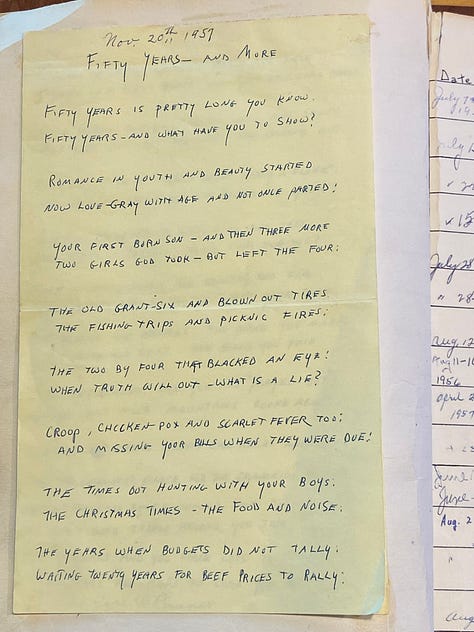 Nov. 20th, 1957
FIFTY YEARS — AND MORE
FIFTY YEARS IS PRETTY LONG YOU KNOW.
FIFTY YEARS - AND WHAT HAVE YOU TO SHOW?
ROMANCE IN YOUTH AND BEAUTY STARTED
NOW LOVE-GRAY WITH AGE AND NOT ONCE PARTED!
YOUR FIRST BORN SON - AND THEN THREE MORE
TWO GIRLS GOD TOOK - BUT LEFT THE FOUR:
THE OLD GRANT-SIX AND BLOWN OUT TIRES
THE FISHING TRIPS AND PICKNIC FIRES:
THE TWO BY FOUR THAT BLACKED AN EYE!
WHEN TRUTH WILL OUT - WHAT IS A LIE?
CROOP, CHICKEN-POX AND SCARLET FEVER TOO:
AND MISSING YOUR BILLS WHEN THEY WERE DUE!
THE TIMES OUT HUNTING WITH YOUR BOYS:
THE CHRISTMAS TIMES - THE FOOD AND NOISE:
THE YEARS WHEN BUDGETS DID NOT TALLY:
WAITING TWENTY YEARS FOR BEEF PRICES TO RALLY:
Date
July
July
July 28
" 28
Aug. 12
Aug 11-
1956
April 2
1957
June
June
Aug. 2